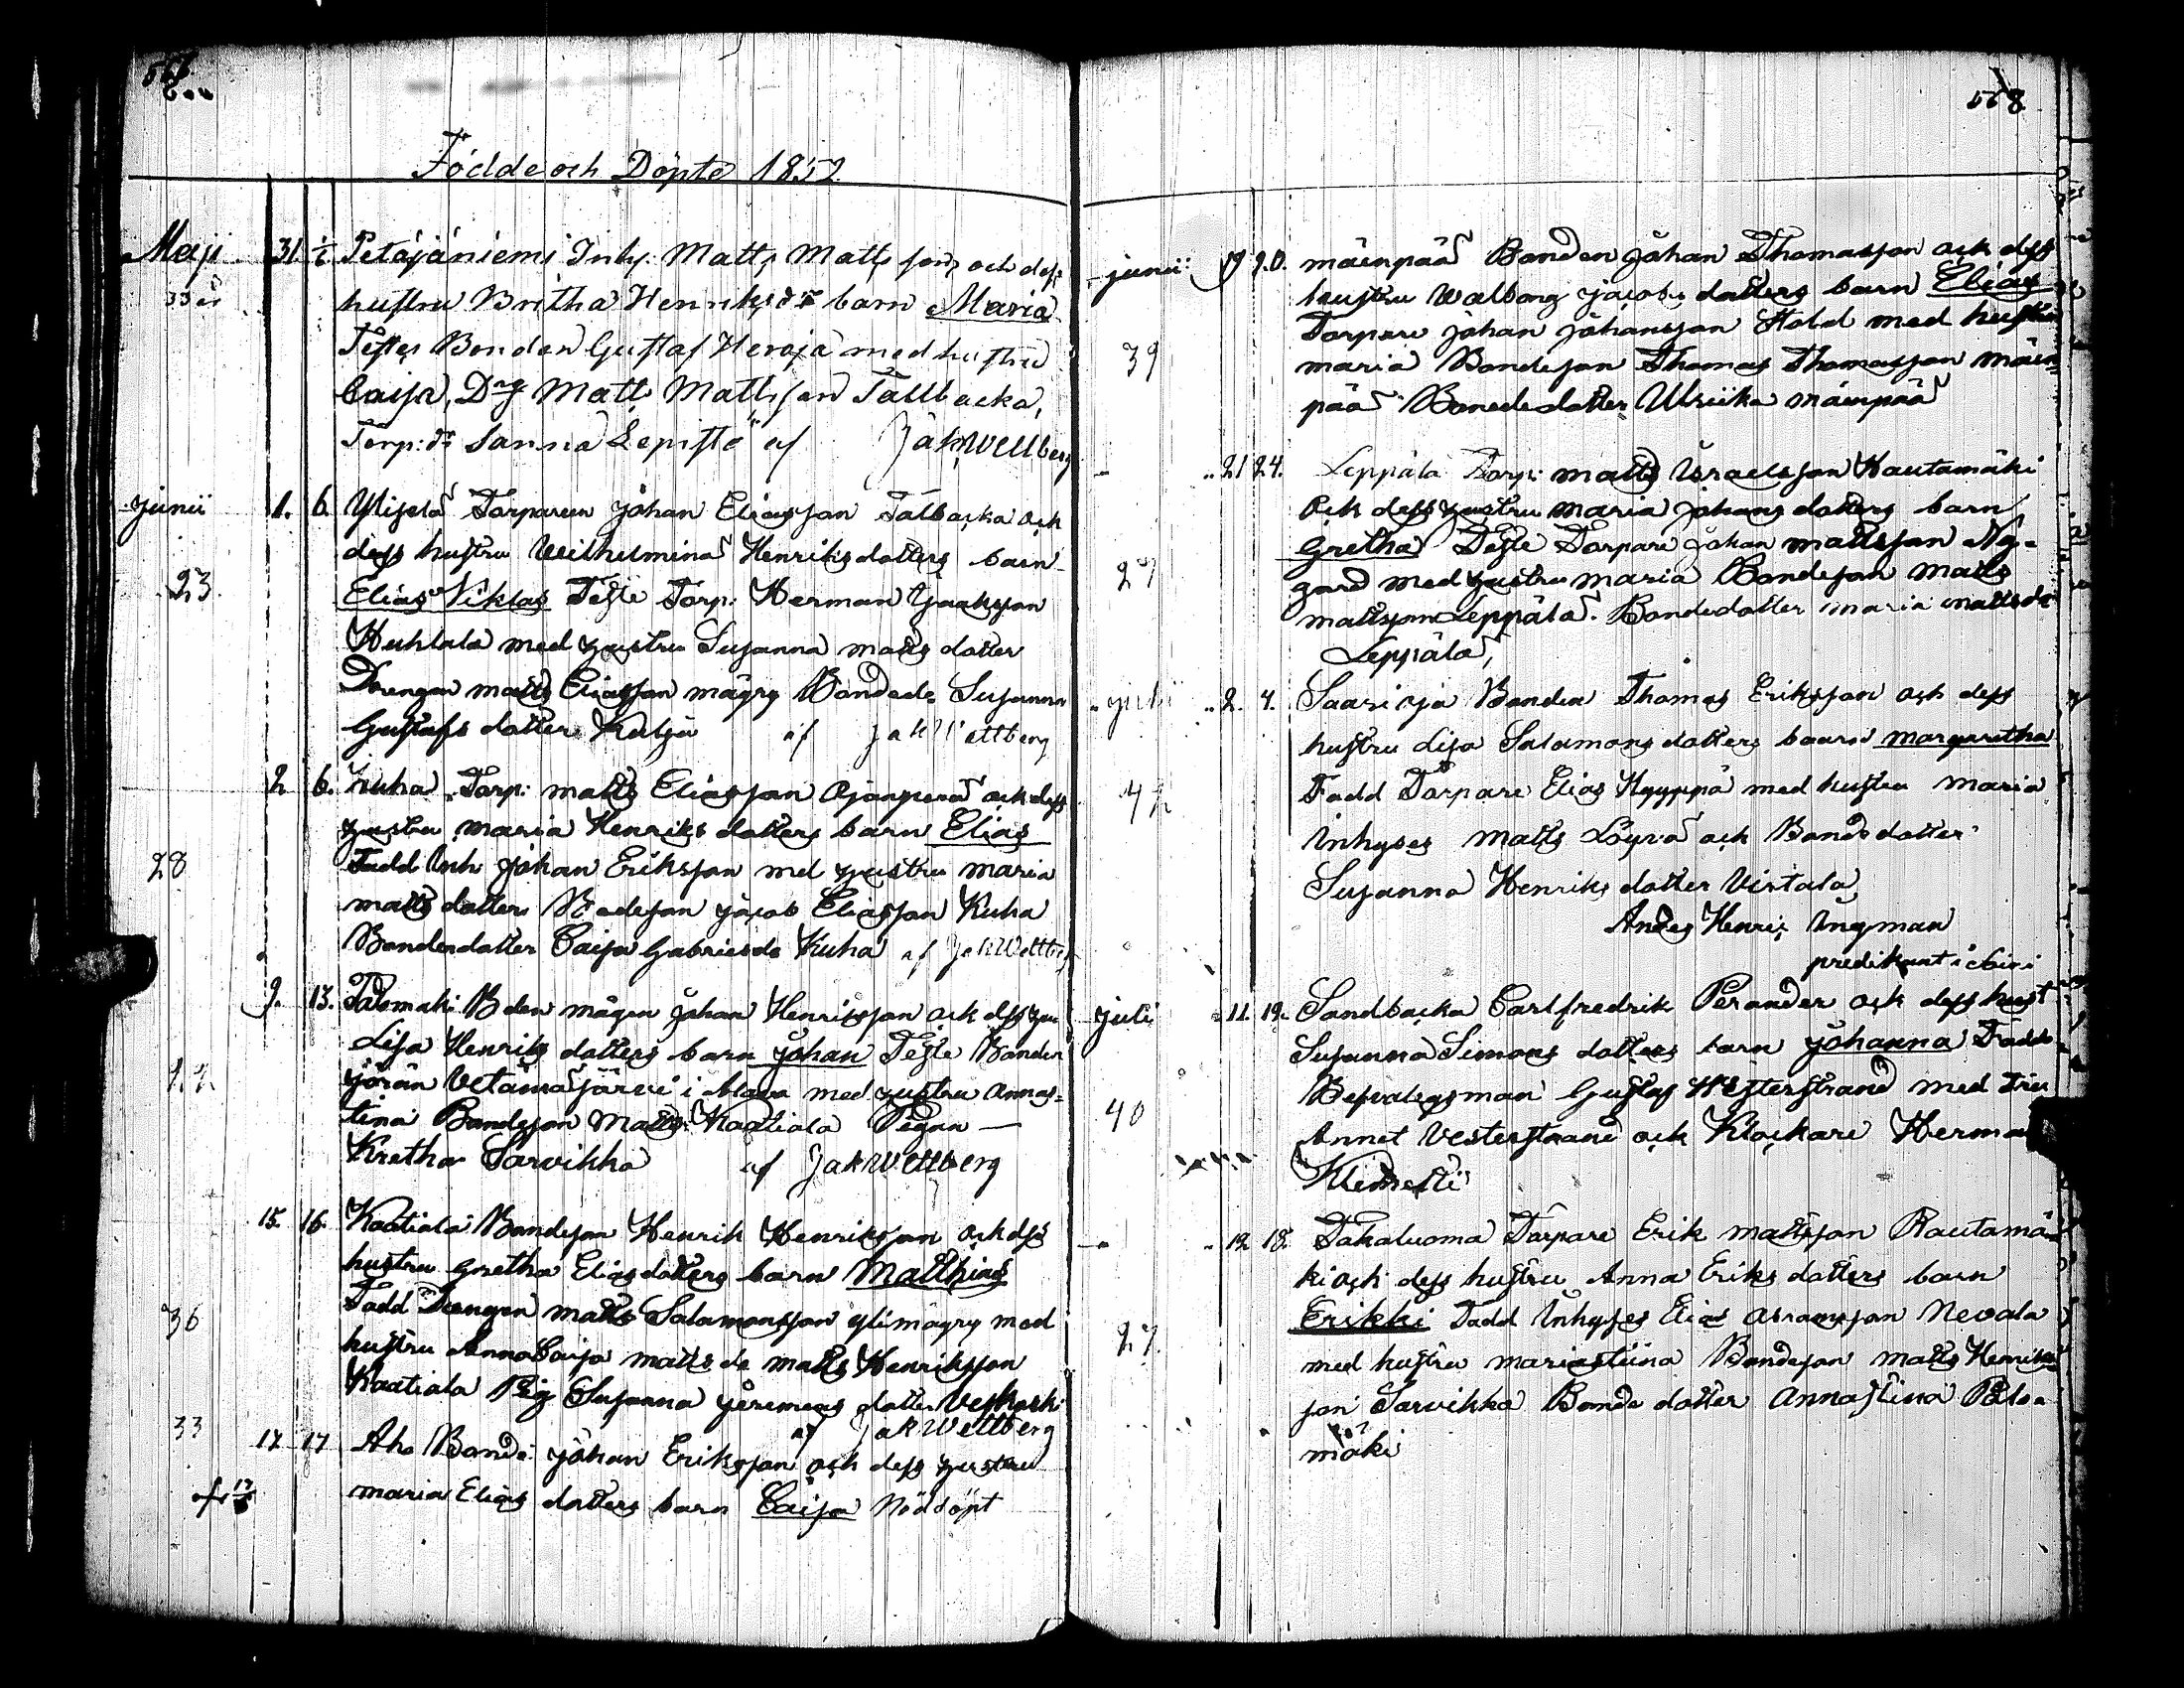 Födde och Döpte 1852
Maji 31. 1/6 Petäjäniemi Inhs. Matts Matts son och dess
33 år hustru Britha Henriksdr barn Maria
Testes Bonden Gustaf Heroja med hustru
Caisa, Drg Matts Mattsson Tallbacka,
Torp: dr Sanna Lepistö af Jak Wellberg
junii 1. 6. Ylisela Torparen johan Eliasson Talbacka ock
dess hustru Wilhelmina Henriksdotters barn
23. Elias Niklas Teste Torp: Herman Isaaksson
Huhtala med hustru Susanna matts dotter
Drengen matts Eliasson mägry Bondedo Susanna
Gustafs dotter af jak Wettberg
2 6. Kuha Torp: matts Eliasson ock dess
hustru maria Henriks dotters barn Elias
28 Fadd Inh johan Eriksson med hustru maria
matts dotter Bodeson jacob Eliasson Kuha
Bondedotter Caisa Gabriels do Kuha af Jak Wettberg
9. 13. Palomaki B den mågen johan Henriksson ock dess hu
Lisa Henriks dotters barn johan Teste Bonden
jöran i med hustru Annas-
tina Bondeson Matts Kaatiala Pigan —
Kretha Sarvikka af Jak Wettberg
15. 16. Kaatiala Bondeson Henrik Henriksson ock dess
hustru gretha Elias dotters barn Matthias
36 Fadd Drengen matts Salamonsson ylimägry med
hustru Anna Caisa matts do matts Henriksson
Kaatiala Pig Susanna jeremeas dotter
af Jak Wettberg
33 17 17 Aho Bonde johan Eriksson och dess hustru
17/6 maria Elias dotters barn Caisa Nöddöpt
568
junii 19 20. mäenpää Bonden johan Thomasson ock dess
hustru Walborg jacobs dotters barn Elias
39 Torpare johan johansson Hold med hustru
maria Bondeson Thomas Thomasson mäen-
pää Bondedotter Ulriika mäenpää
21 24. Leppälä Torp: matts Israelsson Rautamäki
ock dess hustru maria johans dotters barn
27 Gretha Teste Torpare johan mattsson Ny-
gard med hustru maria Bondeson matts
mattsson Leppälä. Bondedotter maria matts do
Leppälä,
julii 2. 4. Saari ja Bonden Thomas Eriksson och dess
hustru Lisa Salamons dotters baarn margaretha
42 Fadd Torpare Elias Hyyppä med hustru maria
Inhyses matts Löyvä och Bonde dotter
Susanna Henriks dotter Virtala
Anders Henric Ingman
predikant i
juli 11. 12. Sandbacka Carl fredrik Perander ock dess hust
Susanna Simons dotters barn johanna Fadd
40 Gustaf Westerstrand med fru
Annet Vesterstrand ock Klockare Herman
Klemetti
12 18. Takaluoma Torpare Erik mattsson Rautamä
ki ock dess hustru Anna Eriks dotters barn
27. Erikki Fadd Inhyses Elias Abramsson Nevala
med hustru mariastiina Bondeson matts Henriks
son Sarvikka Bonde dotter Annastina Palo-
mäki